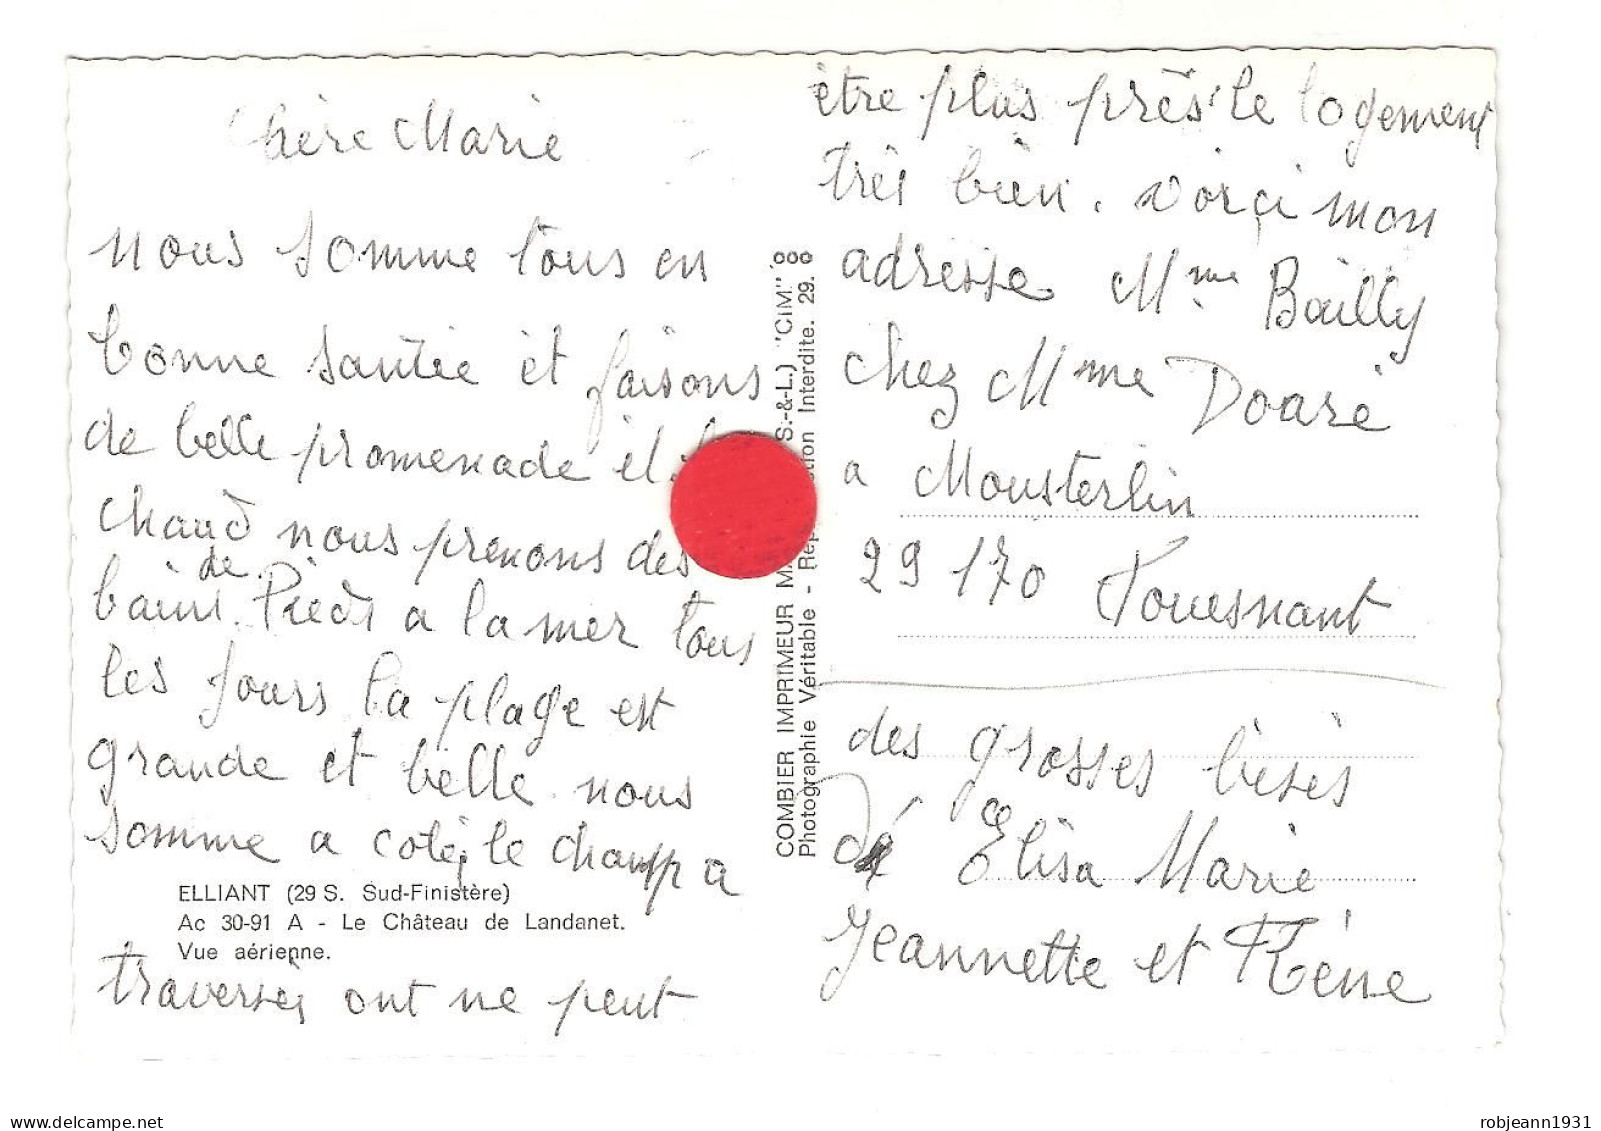 Chère Marie
nous somme tous en
bonne santée et faisons
de belle promenade il
chaud nous prenons des
de
bains Pieds a la mer tous
les jours la plage est
grande et belle. nous
somme a coté, le champ a
ELLIANT (29 S. Sud-Finistère)
Ac 30-91 A - Le Château de Landanet.
Vue aérienne.
traversés ont ne peut
COMBIER IMPRIMEUR S.-&-L.) "CIM"
Photographie Véritable - Interdite. 29.
être plus près le logement
très bien. voiçi mon
adresse Mme Bailly
chez Mme Doaré
a Mousterlin
29170 Fouesnant
des grosses bises
de Elisa Marie
Jeannette et Réne
robjeann1931